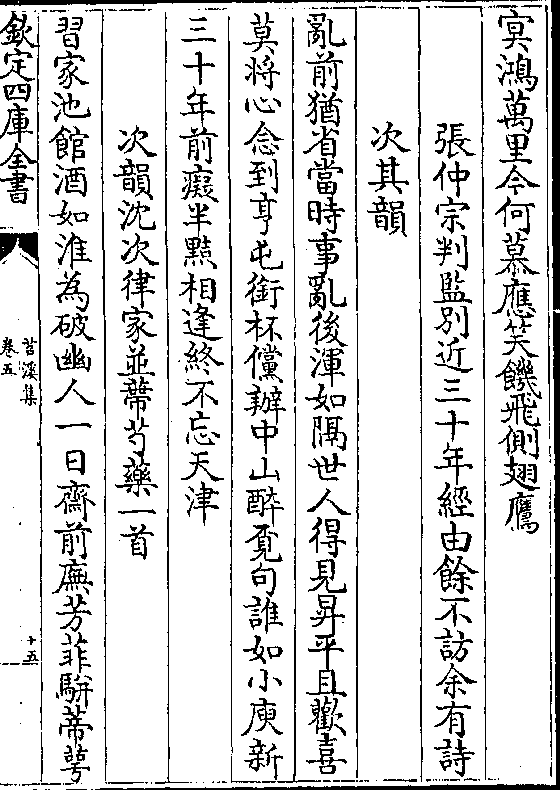 㝠鴻萬里今何慕應笑饑飛側翅鷹
張仲宗判監別近三十年經由餘不訪余有詩
次其韻
亂前猶省當時事亂後渾如隔世人得見昇平且歡喜
莫將心念到亨屯銜杯儻辦中山醉覔句誰如小庾新
三十年前癡半點相逢終不忘天津
次韻沈次律家並蔕芍藥一首
習家池館酒如淮為破幽人一日齋前廡芳菲駢蔕萼
欽定四庫全書
苕溪集
卷五
十五